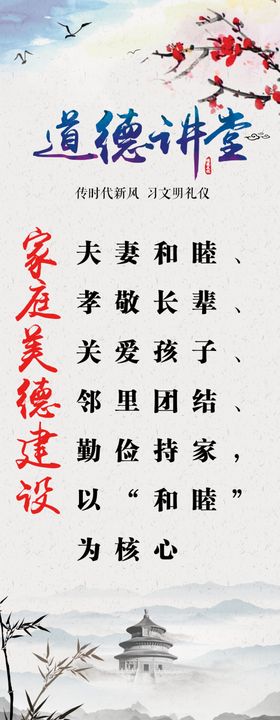 道德讲堂
传时代新风 习文明礼仪
家庭美德建设
夫妻和睦、
孝敬长辈、
关爱孩子、
邻里团结、
勤俭持家，
以“和睦”
为核心